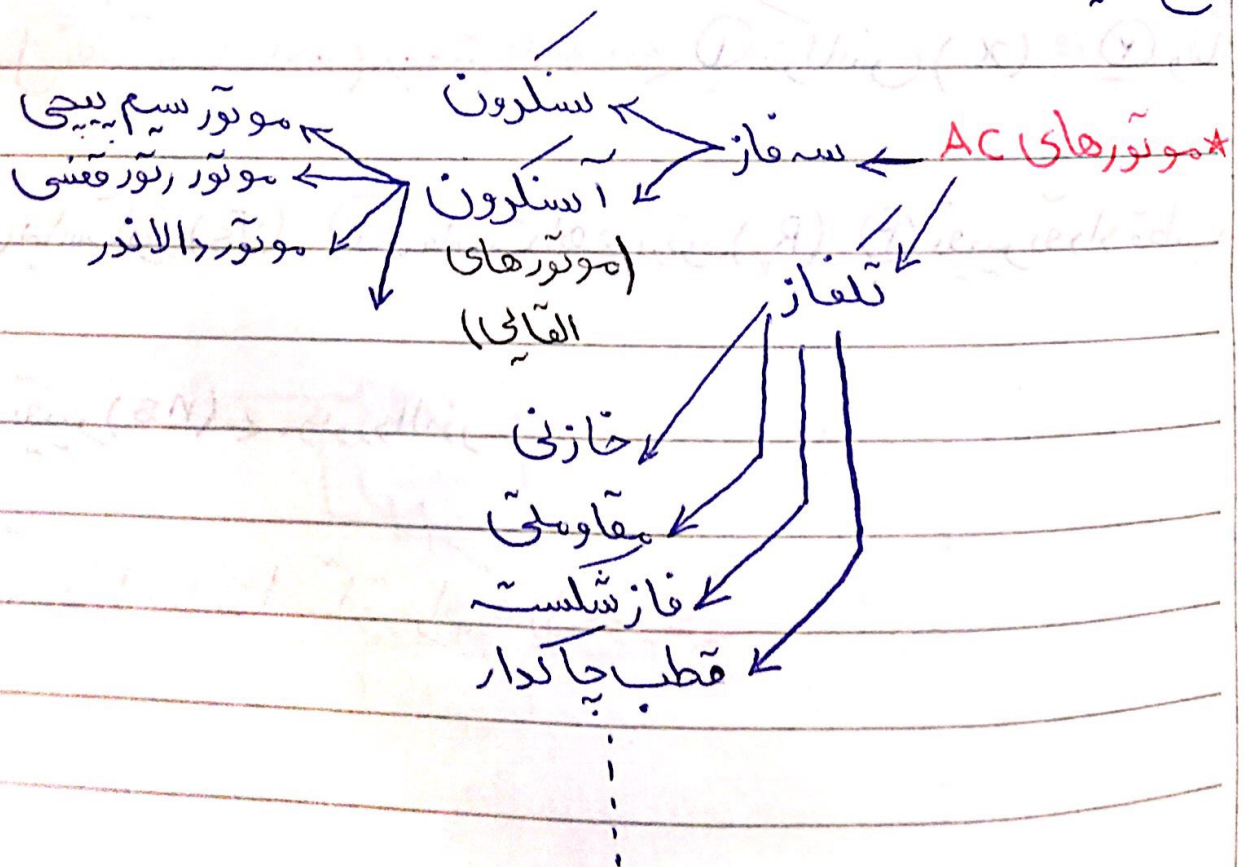 *موتورهای AC
سه فاز
سنکرون
آسنکرون
(موتورهای
القایی)
موتور سیم پیچی
موتور رتور قفسی
موتور دالاندر
تکفاز
خازنی
مقاومتی
فاز شکسته
قطب چاکدار